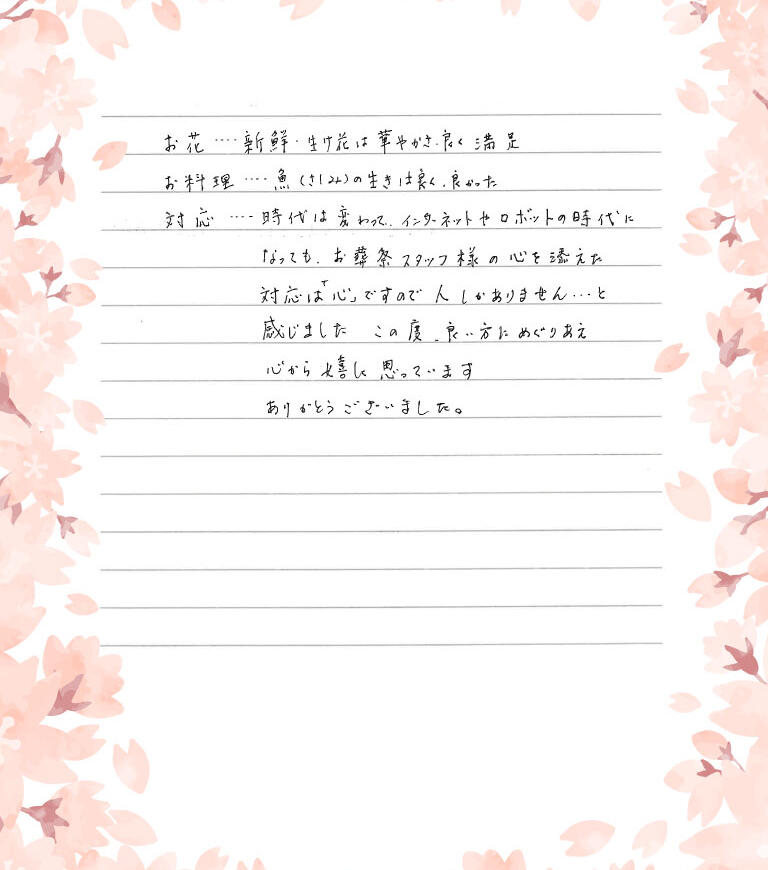 お花‥‥新鮮・生け花は華やかさ、良く満足
お料理‥‥魚(さしみ)の生きは良く、良かった
対応‥‥時代は変わって、インターネットやロボットの時代に
なっても、お葬祭スタッフ様の心を添えた
対応は「心」ですので人しかありません…と
感じました この度、良い方にめぐりあえ
心から嬉しく思っています
ありがとうございました。